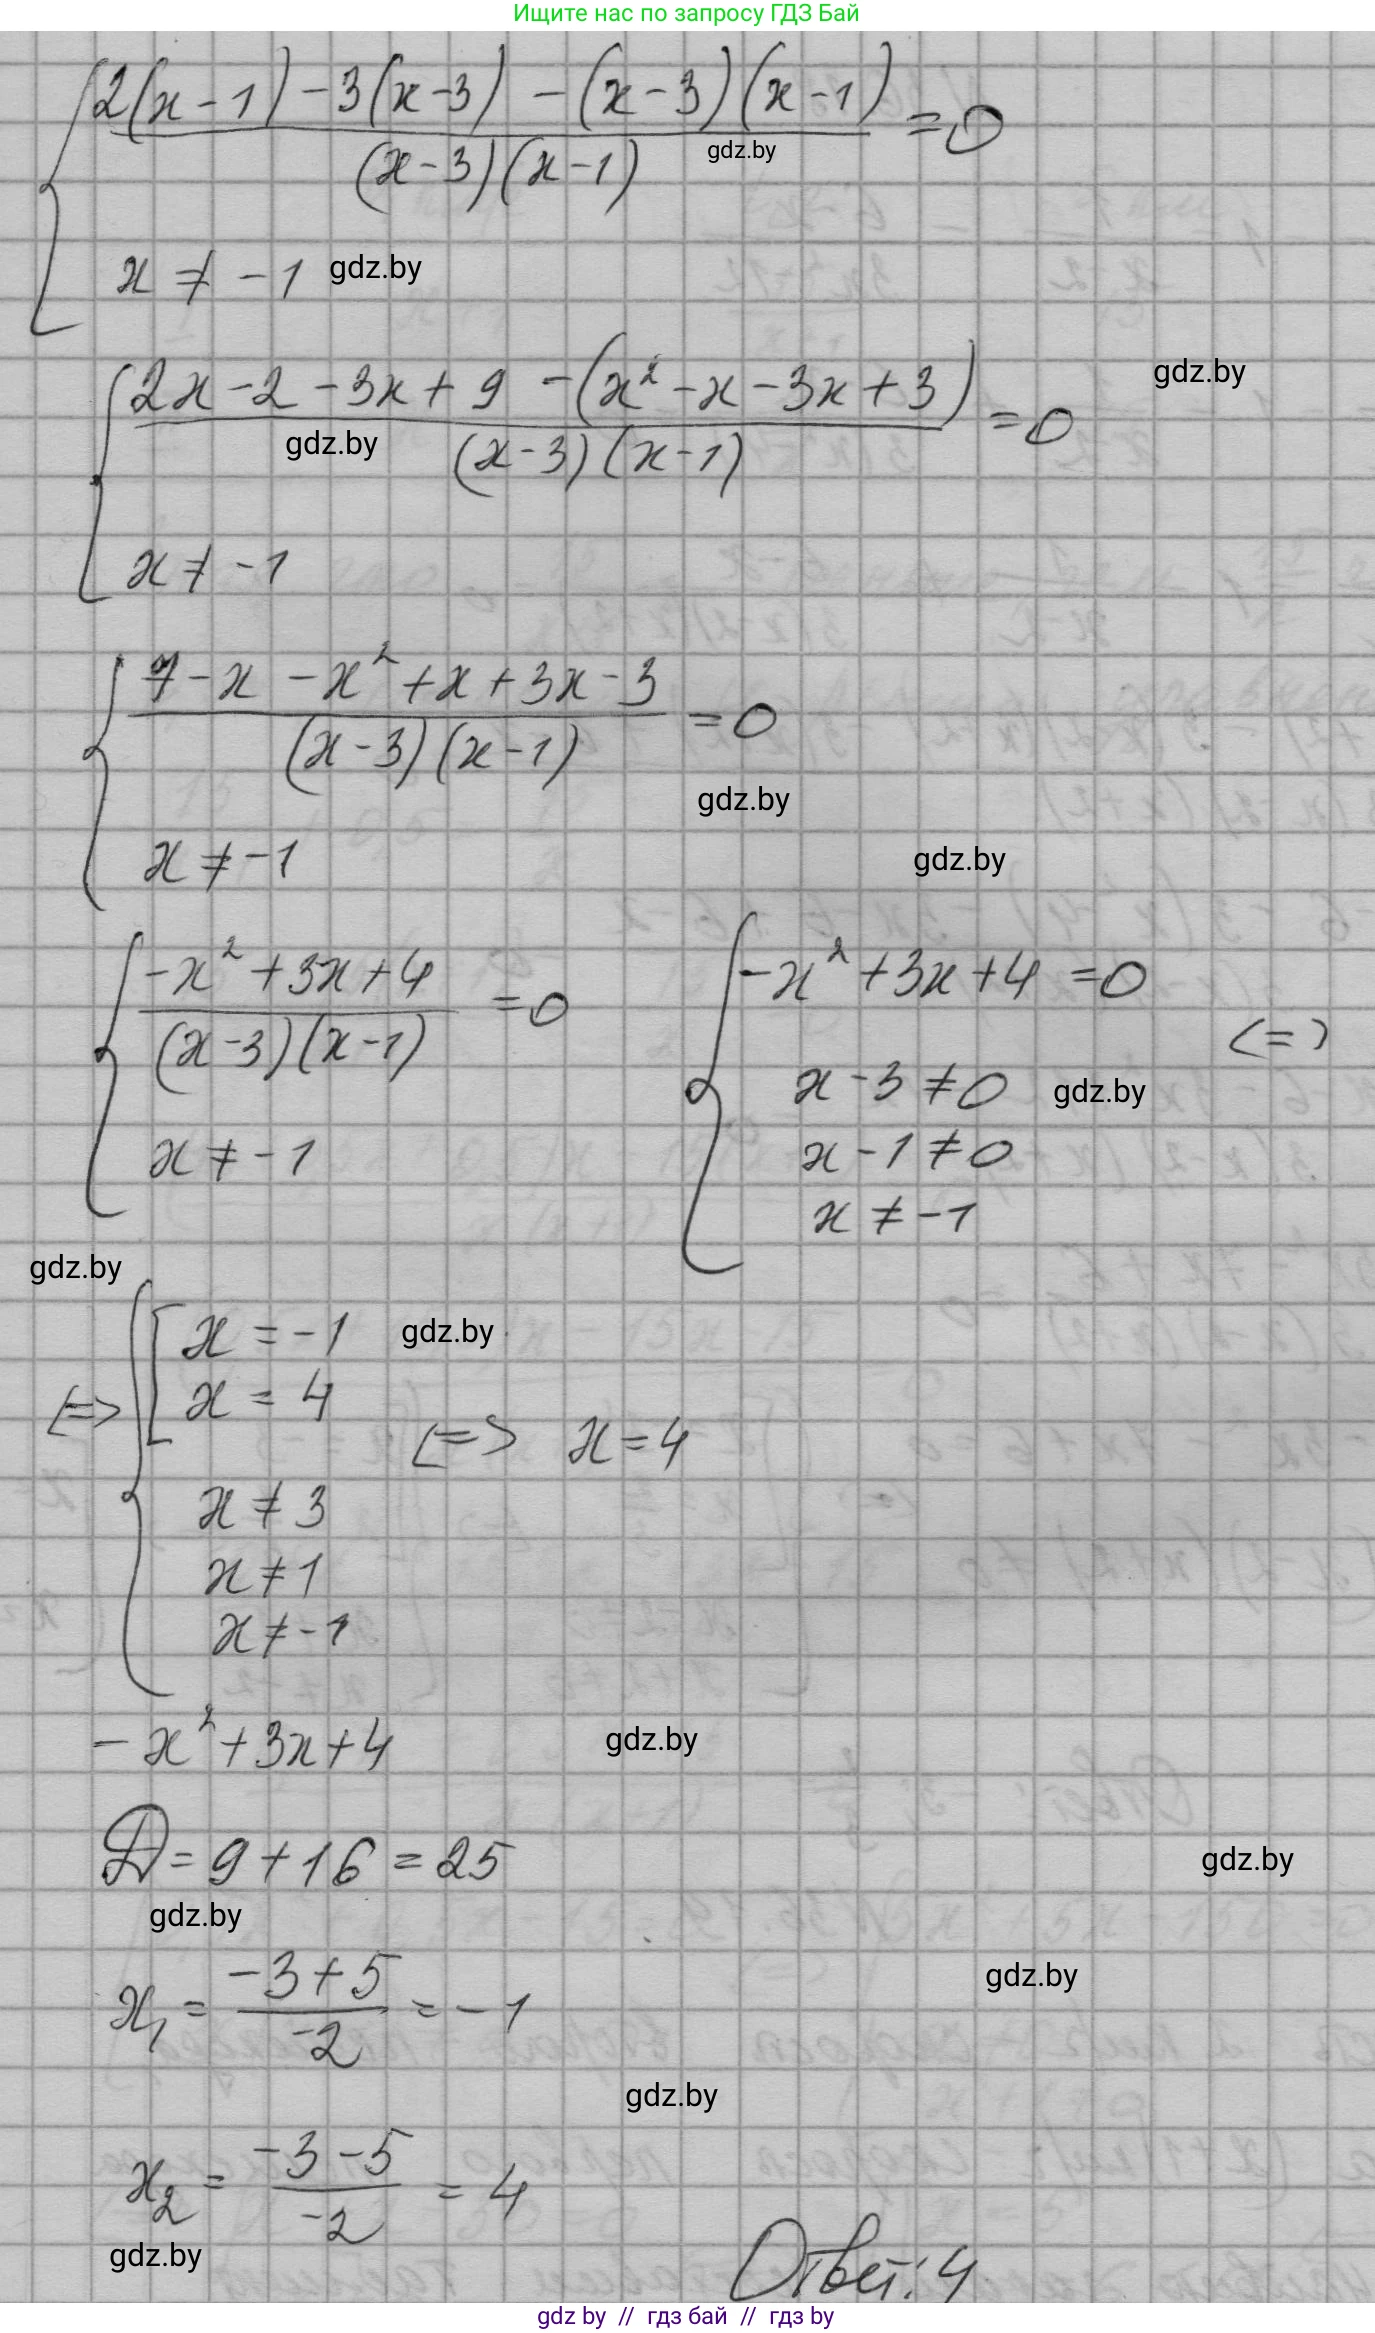 Ищите нас по запросу ГДЗ Бай
2(x-1)-3(x-3)-(x-3)(x-1)
=0
(x-3)(x-1)
gdz.by
x ≠ -1
gdz.by
2x-2-3x+9-(x²-x-3x+3)
=0
gdz.by
gdz.by
(x-3)(x-1)
x ≠ -1
7-x-x²+x+3x-3
=0
(x-3)(x-1)
gdz.by
x ≠ -1
gdz.by
-x²+3x+4
=0
(x-3)(x-1)
x ≠ -1
-x²+3x+4=0
<=>
x-3≠0
gdz.by
x-1≠0
x≠-1
gdz.by
<=>
x=-1
gdz.by
x=4
<=> x=4
x≠3
x≠1
x≠-1
-x²+3x+4
gdz.by
D=9+16=25
gdz.by
gdz.by
x₁ = (-3+5)/(-2) = -1
gdz.by
gdz.by
x₂ = (-3-5)/(-2) = 4
gdz.by
Ответ: 4
gdz by // гдз бай // гдз by